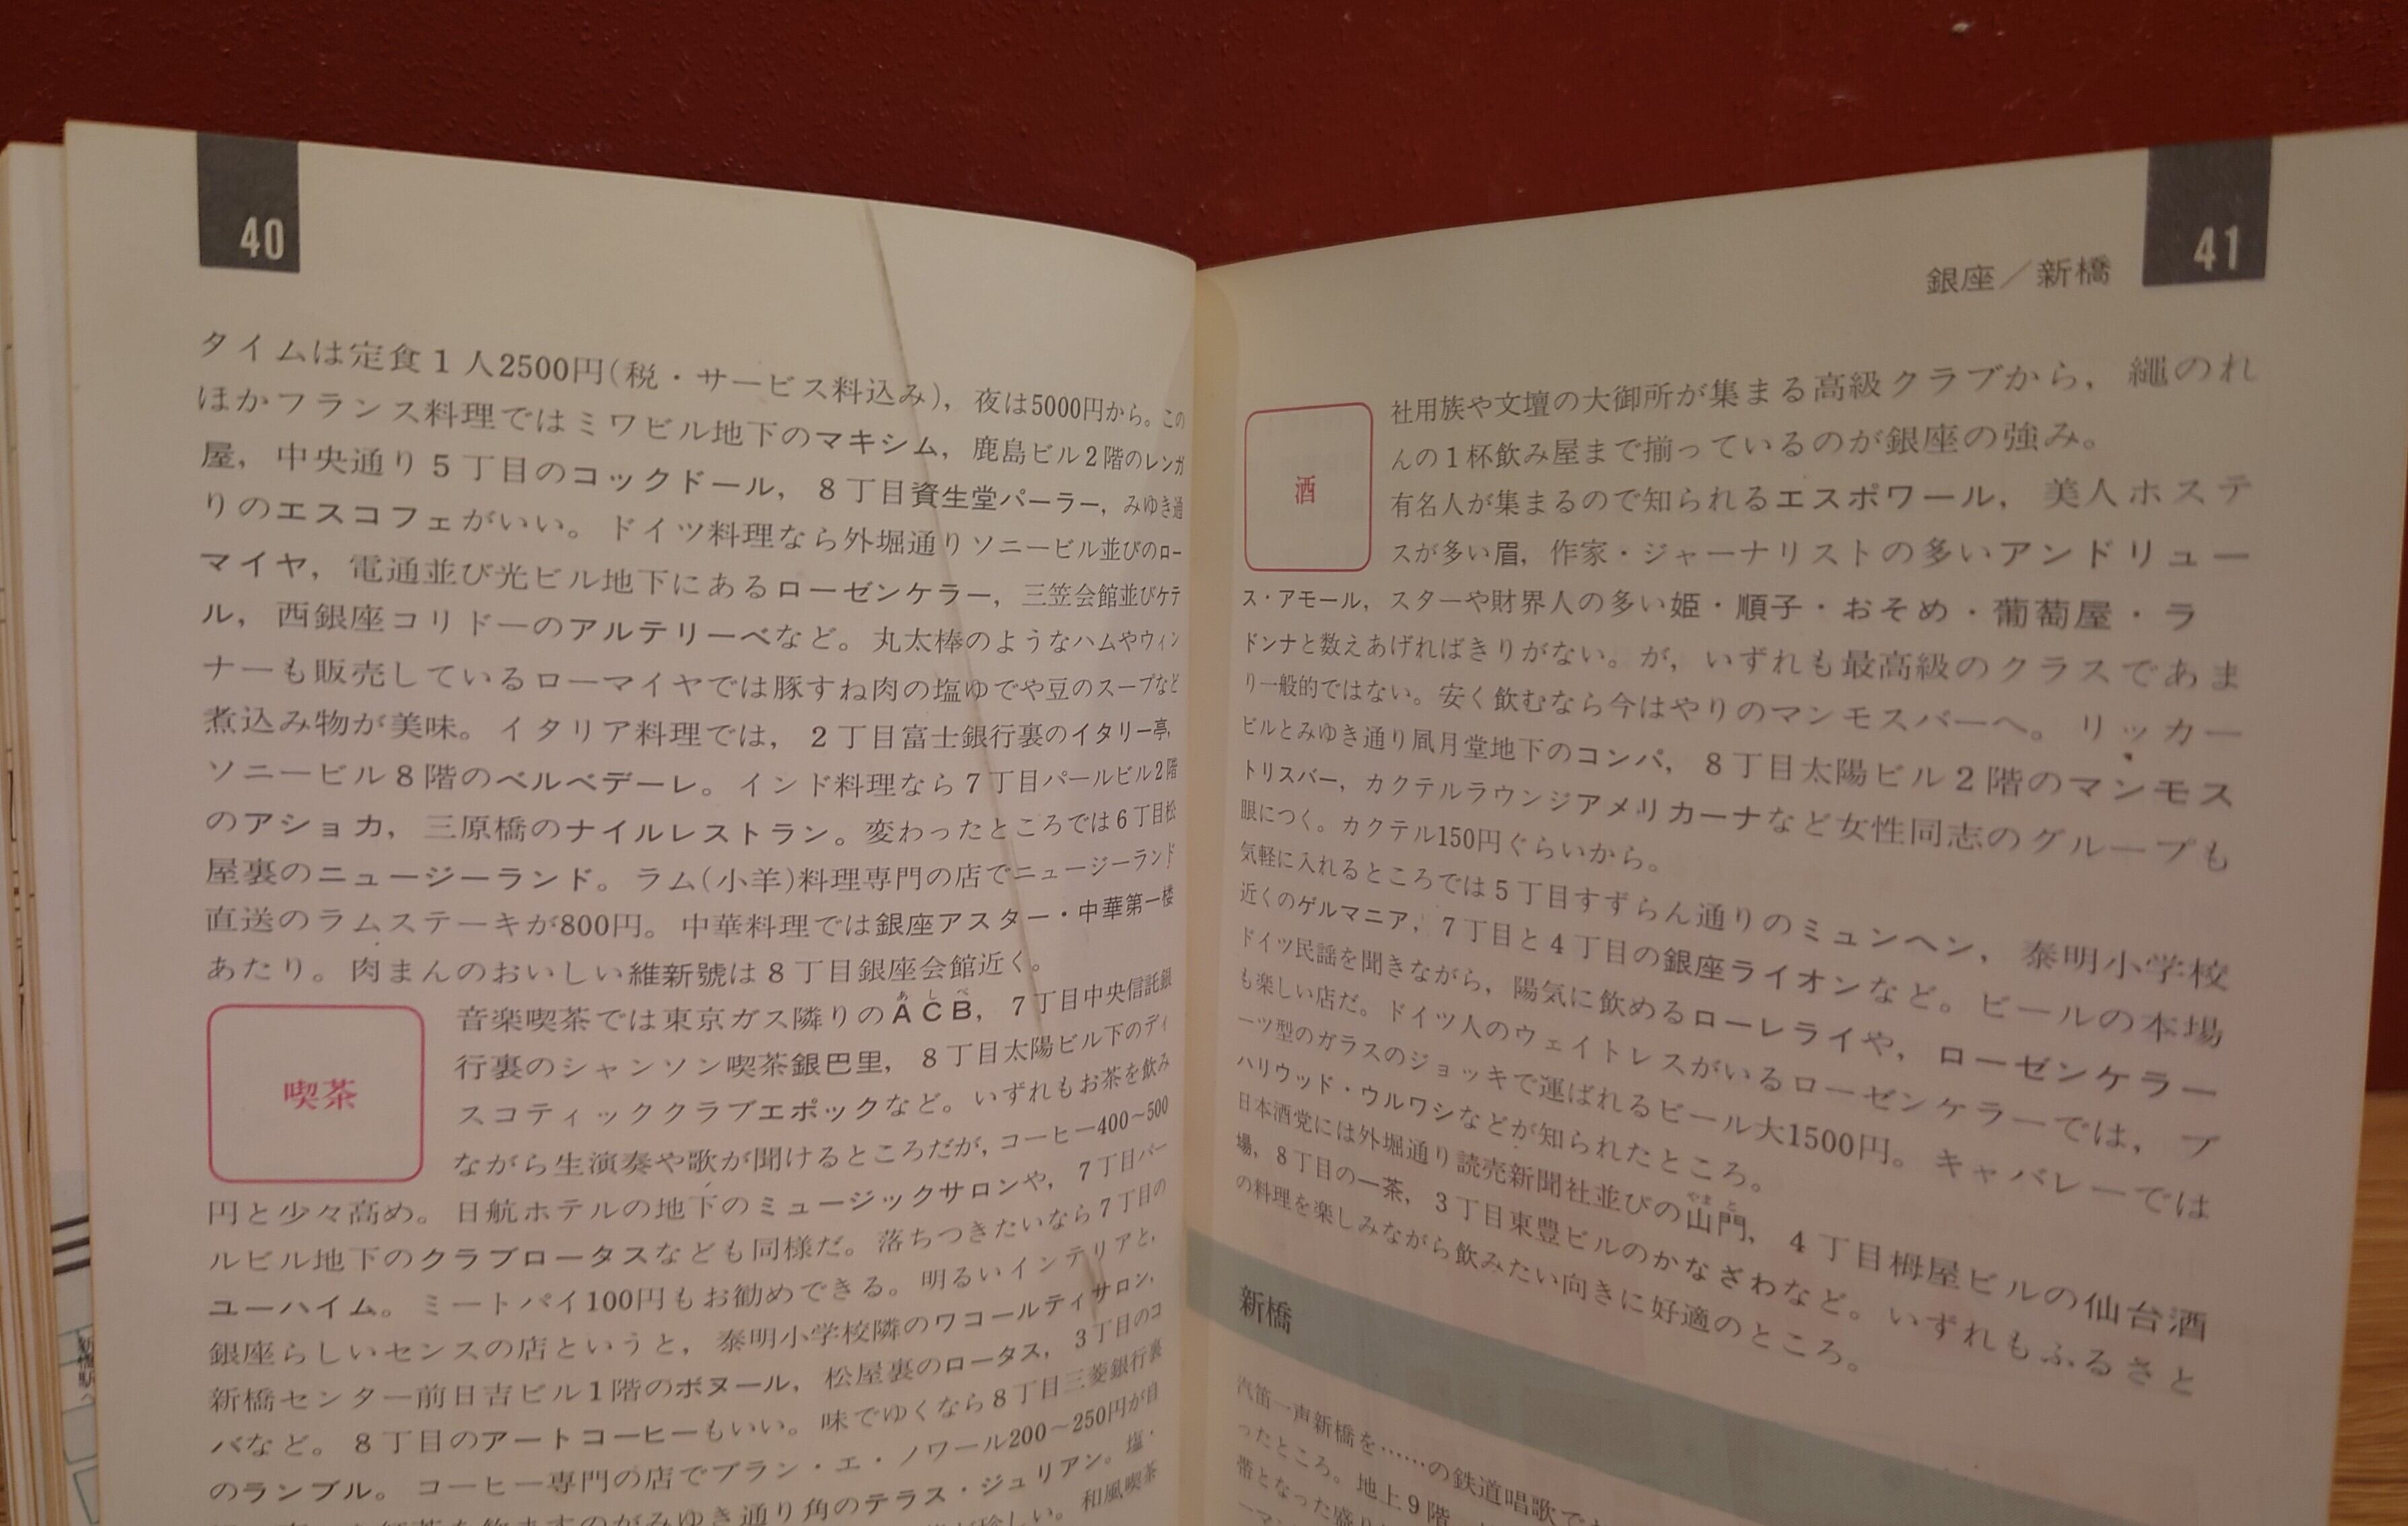 40
タイムは定食1人2500円(税・サービス料込み)，夜は5000円から。この
ほかフランス料理ではミワビル地下のマキシム，鹿島ビル2階のレンガ
屋，中央通り5丁目のコックドール，8丁目資生堂パーラー，みゆき通
りのエスコフェがいい。ドイツ料理なら外堀通りソニービル並びのロー
マイヤ，電通並び光ビル地下にあるローゼンケラー，三笠会館並びケテ
ル，西銀座コリドーのアルテリーベなど。丸太棒のようなハムやウィン
ナーも販売しているローマイヤでは豚すね肉の塩ゆでや豆のスープなど
煮込み物が美味。イタリア料理では，2丁目富士銀行裏のイタリー亭，
ソニービル8階のベルベデーレ。インド料理なら7丁目パールビル2階
のアショカ，三原橋のナイルレストラン。変わったところでは6丁目松
屋裏のニュージーランド。ラム(小羊)料理専門の店でニュージーランド
直送のラムステーキが800円。中華料理では銀座アスター・中華第一楼
あたり。肉まんのおいしい維新號は8丁目銀座会館近く。
喫茶
音楽喫茶では東京ガス隣りのACB，7丁目中央信託銀
あしべ
行裏のシャンソン喫茶銀巴里，8丁目太陽ビル下のディ
スコティッククラブエポックなど。いずれもお茶を飲み
ながら生演奏や歌が聞けるところだが，コーヒー400～500
円と少々高め。日航ホテルの地下のミュージックサロンや，7丁目パー
ルビル地下のクラブロータスなども同様だ。落ちつきたいなら7丁目の
ユーハイム。ミートパイ100円もお勧めできる。明るいインテリアと，
銀座らしいセンスの店というと，泰明小学校隣のワコールティサロン，
新橋センター前日吉ビル1階のボヌール，松屋裏のロータス，3丁目のコ
バなど。8丁目のアートコーヒーもいい。味でゆくなら8丁目三菱銀行裏
のランブル。コーヒー専門の店でブラン・エ・ノワール200～250円が自
みゆき通り角のテラス・ジュリアン。塩・
珍しい。和風喫茶
銀座／新橋
41
酒
社用族や文壇の大御所が集まる高級クラブから，縄のれ
んの1杯飲み屋まで揃っているのが銀座の強み。
有名人が集まるので知られるエスポワール，美人ホステ
スが多い眉，作家・ジャーナリストの多いアンドリュー
ス・アモール，スターや財界人の多い姫・順子・おそめ・葡萄屋・ラ
ドンナと数えあげればきりがない。が，いずれも最高級のクラスであま
り一般的ではない。安く飲むなら今はやりのマンモスバーへ。リッカー
ビルとみゆき通り凮月堂地下のコンパ，8丁目太陽ビル2階のマンモス
トリスバー，カクテルラウンジアメリカーナなど女性同志のグループも
眼につく。カクテル150円ぐらいから。
気軽に入れるところでは5丁目すずらん通りのミュンヘン，泰明小学校
近くのゲルマニア，7丁目と4丁目の銀座ライオンなど。ビールの本場
ドイツ民謡を聞きながら，陽気に飲めるローレライや，ローゼンケラー
も楽しい店だ。ドイツ人のウェイトレスがいるローゼンケラーでは，ブ
ーツ型のガラスのジョッキで運ばれるビール大1500円。キャバレーでは
ハリウッド・ウルワシなどが知られたところ。
日本酒党には外堀通り読売新聞社並びの山門，4丁目栂屋ビルの仙台酒
やまと
場，8丁目の一茶，3丁目東豊ビルのかなざわなど。いずれもふるさと
の料理を楽しみながら飲みたい向きに好適のところ。
新橋
汽笛一声新橋を……の鉄道唱歌で
ったところ。地上9階
帯となった盛り
新橋駅へ